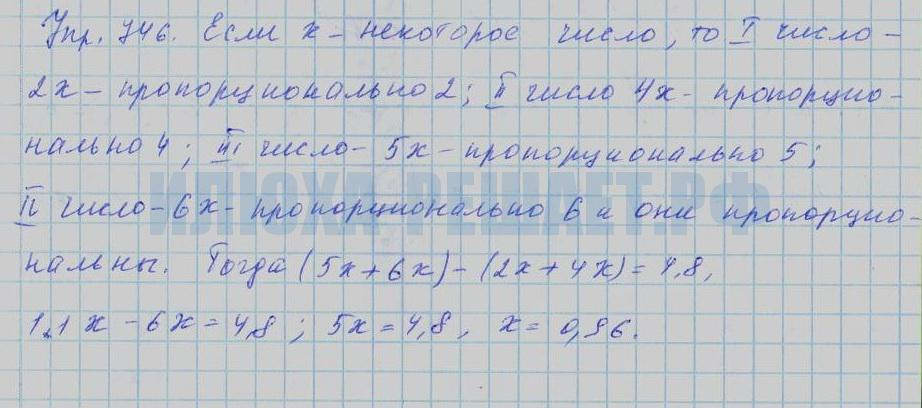 Упр. 746. Если x – некоторое число, то I число –
2x – пропорционально 2; II число 4x – пропорцио-
нально 4; III число – 5x – пропорционально 5;
ИЛЮХА-РЕШАЕТ.РФ
IV число – 6x – пропорционально 6 и они пропорцио-
нальны. Тогда (5x+6x)–(2x+4x)=4,8,
11x –6x=4,8; 5x=4,8, x=0,96.